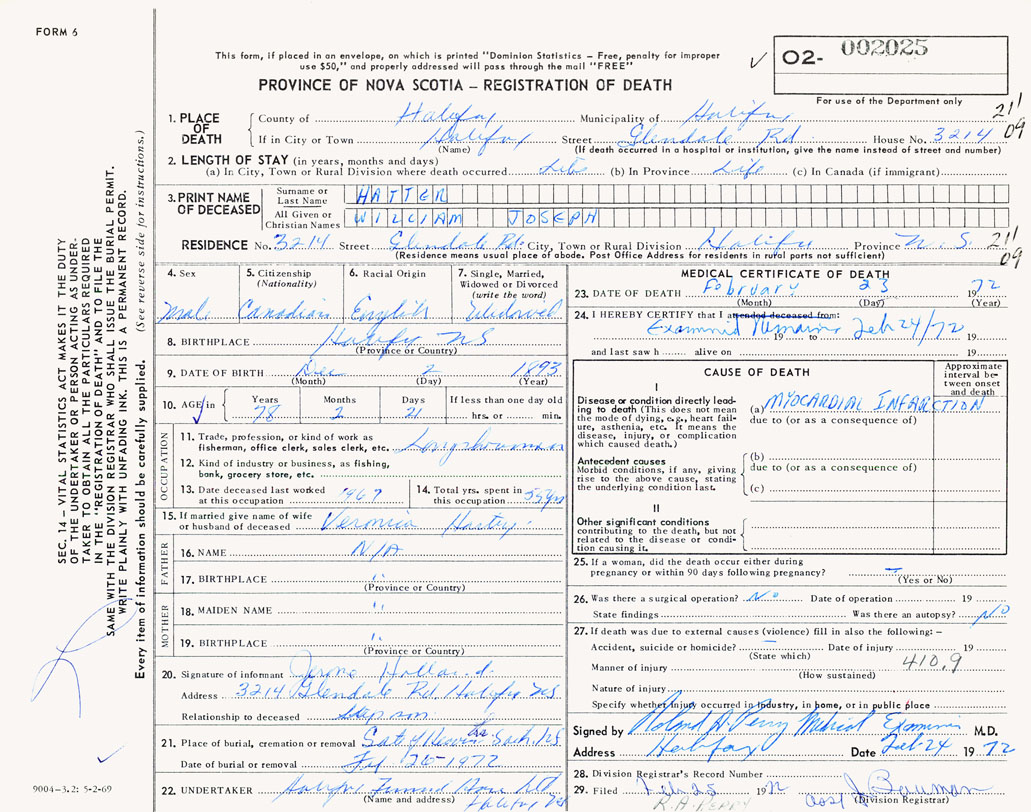 FORM 6
This form, if placed in an envelope, on which is printed "Dominion Statistics – Free, penalty for improper
use $50," and properly addressed will pass through the mail "FREE"
O2- 002025
PROVINCE OF NOVA SCOTIA – REGISTRATION OF DEATH
For use of the Department only
211
09
1. PLACE OF DEATH County of Halifax Municipality of Halifax
If in City or Town Halifax Street Glendale Rd House No. 3214
(Name) (If death occurred in a hospital or institution, give the name instead of street and number)
2. LENGTH OF STAY (in years, months and days)
(a) In City, Town or Rural Division where death occurred Life (b) In Province Life (c) In Canada (if immigrant)
3. PRINT NAME OF DECEASED Surname or Last Name HATTER
All Given or Christian Names WILLIAM JOSEPH
RESIDENCE No. 3214 Street Glendale Rd. City, Town or Rural Division Halifax Province N.S. 211
09
(Residence means usual place of abode. Post Office Address for residents in rural parts not sufficient)
4. Sex Male
5. Citizenship (Nationality) Canadian
6. Racial Origin English
7. Single, Married, Widowed or Divorced (write the word) Widowed
8. BIRTHPLACE Halifax NS
(Province or Country)
9. DATE OF BIRTH Dec 2 1893
(Month) (Day) (Year)
10. AGE in Years 78 Months 2 Days 21 If less than one day old hrs. or min.
OCCUPATION
11. Trade, profession, or kind of work as fisherman, office clerk, sales clerk, etc. Longshoreman
12. Kind of industry or business, as fishing, bank, grocery store, etc.
13. Date deceased last worked at this occupation 1967
14. Total yrs. spent in this occupation 55 yrs
15. If married give name of wife or husband of deceased Veronica
FATHER
16. NAME N/A
17. BIRTHPLACE "
(Province or Country)
MOTHER
18. MAIDEN NAME "
19. BIRTHPLACE "
(Province or Country)
20. Signature of informant Holland
Address 3214 Glendale Rd Halifax NS
Relationship to deceased Step son
21. Place of burial, cremation or removal Gate of Heaven Sack. NS
Date of burial or removal Feb 26-1972
22. UNDERTAKER Halifax Funeral Home Ltd
(Name and address) Halifax NS
MEDICAL CERTIFICATE OF DEATH
23. DATE OF DEATH February 23 1972
(Month) (Day) (Year)
24. I HEREBY CERTIFY that I attended deceased from:
Examined Remains Feb 24/72
19 to 19
and last saw h alive on 19
CAUSE OF DEATH
Approximate interval between onset and death
I
Disease or condition directly leading to death (This does not mean the mode of dying, e.g., heart failure, asthenia, etc. It means the disease, injury, or complication which caused death.)
(a) MYOCARDIAL INFARCTION
due to (or as a consequence of)
Antecedent causes
Morbid conditions, if any, giving rise to the above cause, stating the underlying condition last.
(b)
due to (or as a consequence of)
(c)
II
Other significant conditions
contributing to the death, but not related to the disease or condition causing it.
25. If a woman, did the death occur either during
pregnancy or within 90 days following pregnancy? –
(Yes or No)
26. Was there a surgical operation? No Date of operation 19
State findings Was there an autopsy? No
27. If death was due to external causes (violence) fill in also the following: –
Accident, suicide or homicide? – Date of injury 19
(State which)
Manner of injury 410.9
(How sustained)
Nature of injury
Specify whether injury occurred in industry, in home, or in public place
Signed by Roland H. Perry Medical Examiner M.D.
Address Halifax Date Feb 24 1972
28. Division Registrar's Record Number
29. Filed Feb 25 1972
(Division Registrar)
R.H. PERRY
SEC. 14 – VITAL STATISTICS ACT MAKES IT THE DUTY
OF THE UNDERTAKER OR PERSON ACTING AS UNDER-
TAKER TO OBTAIN ALL THE PARTICULARS REQUIRED
IN THE "REGISTRATION OF DEATH" AND TO FILE THE
SAME WITH THE DIVISION REGISTRAR WHO SHALL ISSUE THE BURIAL PERMIT.
WRITE PLAINLY WITH UNFADING INK. THIS IS A PERMANENT RECORD.
Every item of information should be carefully supplied. (See reverse side for instructions.)
9004–3.2: 5-2-69